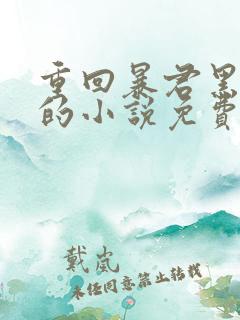 重回暴君黑
的小说免费
戴岚
未经同意禁止转载